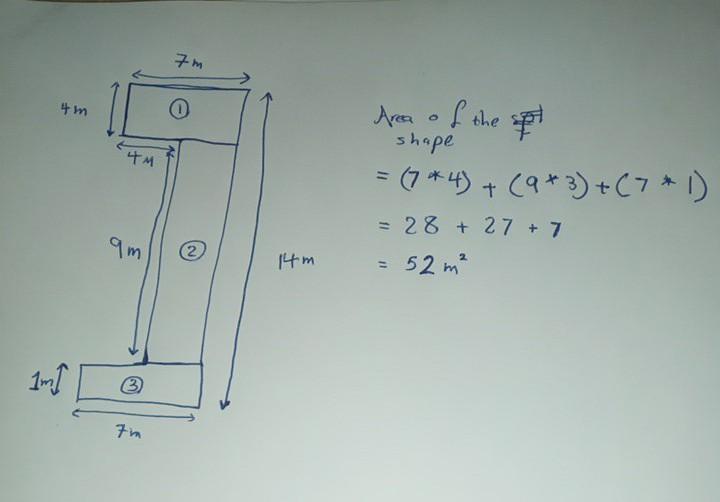 7m
4m
①
4M
9m
②
14m
1m
③
7m
Area of the
shape
= (7 * 4) + (9 * 3) + (7 * 1)
= 28 + 27 + 7
= 52 m²